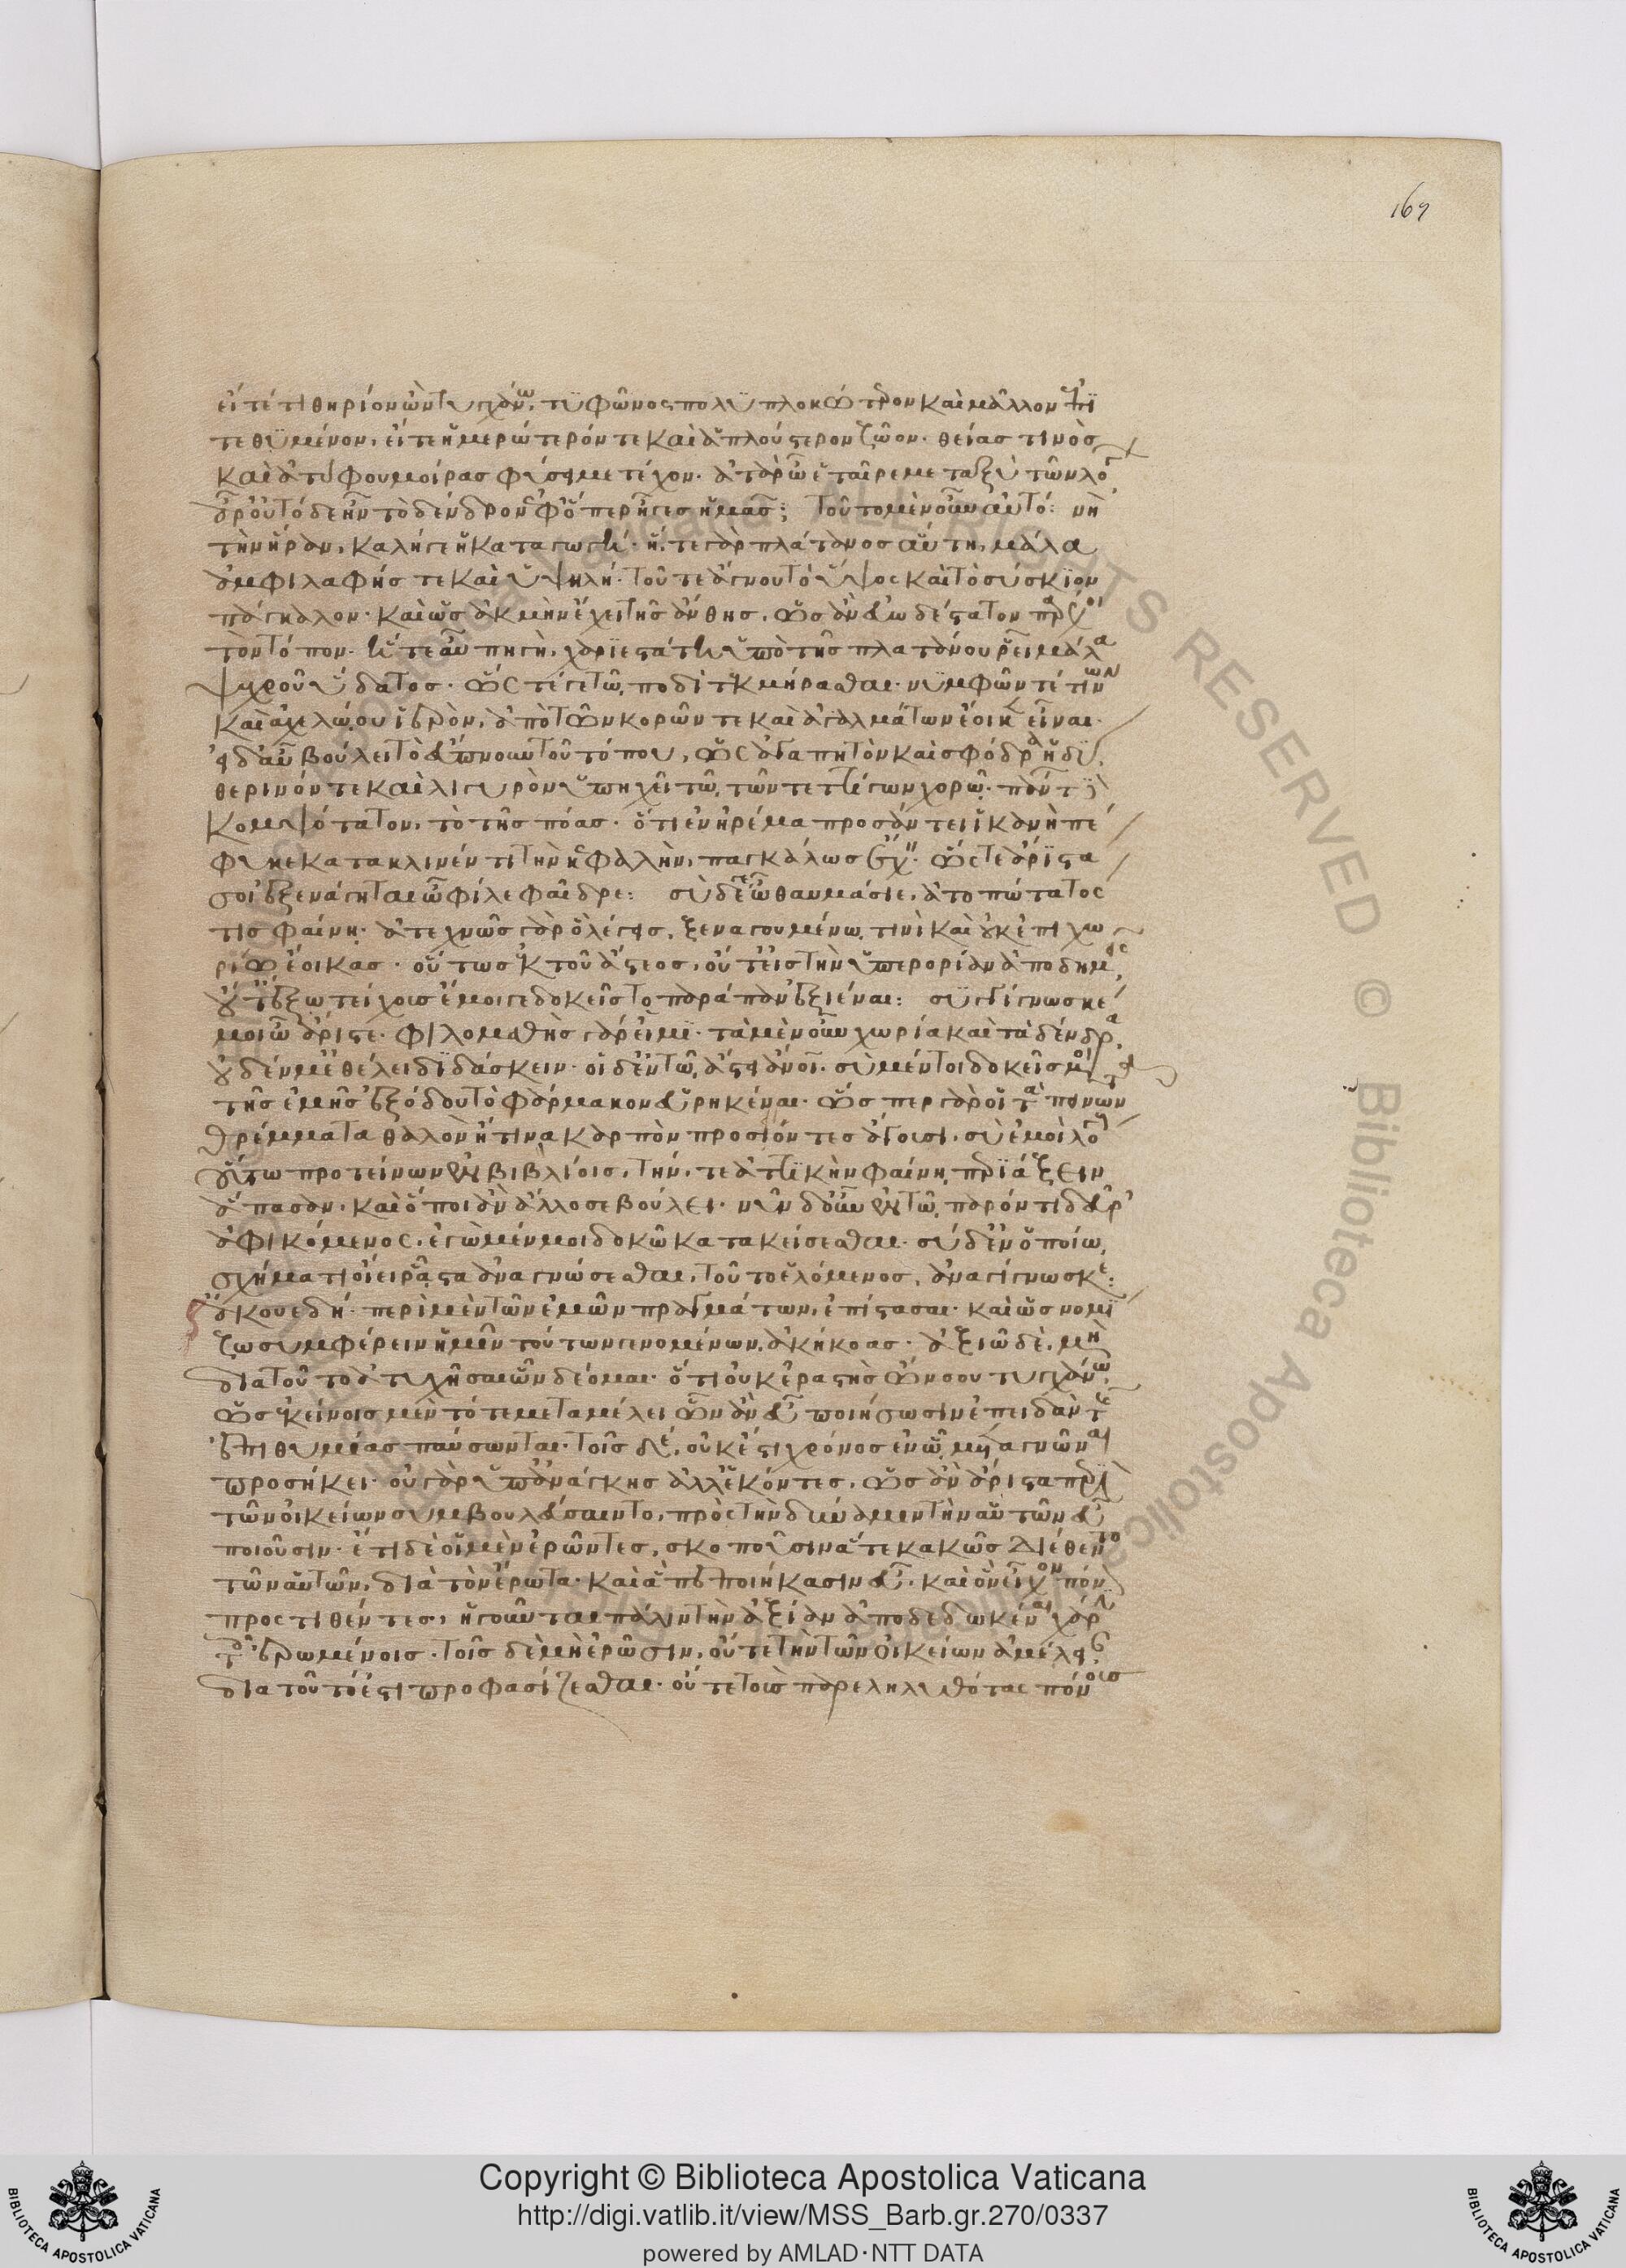 169
εἴτέ τι θηρίον ὢν τυγχάνω, τυφῶνος πολυπλοκώτερον καὶ μᾶλλον ἐπι
τεθυμμένον, εἴτε ἡμερώτερόν τε καὶ ἁπλούστερον ζῷον· θείας τινὸς
καὶ ἀτύφου μοίρας φύσει μετέχον. ἀτὰρ ὦ ἑταῖρε μεταξὺ τῶν λόγων
ἆρ' οὐ τόδε ἦν τὸ δένδρον ἐφ' ὅπερ ἦγες ἡμᾶς; τοῦτο μὲν οὖν αὐτό: νὴ
τὴν ἥραν, καλή γε ἡ καταγωγή· ἥ, τε γὰρ πλάτανος αὕτη, μάλα
ἀμφιλαφής τε καὶ ὑψηλή· τοῦ τε ἄγνου τὸ ὕψος καὶ τὸ σύσκιον
πάγκαλον· καὶ ὡς ἀκμὴν ἔχει τῆς ἄνθης, ὡς ἂν εὐωδέστατον παρέχοι
τὸν τόπον· ἥ τε αὖ πηγὴ, χαριεστάτη ὑπὸ τῆς πλατάνου ῥεῖ μάλα
ψυχροῦ ὕδατος· ὥς τέ γε τῷ, ποδὶ τεκμήρασθαι· νυμφῶν τέ τινων
καὶ ἀχελῴου ἱερὸν, ἀπὸ τῶν κορῶν τε καὶ ἀγαλμάτων ἔοικεν εἶναι.
εἰ δ' αὖ βούλει τὸ εὔπνουν τοῦ τόπου, ὡς ἀγαπητὸν καὶ σφόδρα ἡδύ,
θερινόν τε καὶ λιγυρὸν ὑπηχεῖ τῷ, τῶν τεττίγων χορῷ· πάντων δὲ
κομψότατον, τὸ τῆς πόας· ὅτι ἐν ἠρέμα προσάντει ἱκανὴ πέ
φυκε κατακλινέντι τὴν κεφαλὴν, παγκάλως ἔχειν· ὥς τε ἄριστα
σοι ἐξενάγηται ὦ φίλε φαῖδρε: σὺ δέ γε ὦ θαυμάσιε, ἀτοπώτατός
τις φαίνῃ· ἀτεχνῶς γὰρ ὃ λέγεις, ξεναγουμένῳ τινὶ καὶ οὐκ ἐπιχω
ρίῳ ἔοικας· οὕτως ἐκ τοῦ ἄστεος, οὔτ' εἰς τὴν ὑπερορίαν ἀποδημεῖς,
οὔτ' ἔξω τείχους ἔμοιγε δοκεῖς τὸ παράπαν ἐξιέναι: συγγίγνωσκέ
μοι ὦ ἄριστε· φιλομαθὴς γάρ εἰμι· τὰ μὲν οὖν χωρία καὶ τὰ δένδρα,
οὐδέν μ' ἐθέλει διδάσκειν· οἱ δ' ἐν τῷ, ἄστει ἄνθρωποι· σὺ μέντοι δοκεῖς μοι
τῆς ἐμῆς ἐξόδου τὸ φάρμακον εὑρηκέναι· ὥς περ γὰρ οἱ τὰ πεινῶντα
θρέμματα θαλὸν ἤ τινα καρπὸν προσιόντες ἄγουσι, σὺ ἐμοὶ λόγους
οὕτω προτείνων ἐν βιβλίοις, τήν, τε ἀττικὴν φαίνῃ, περιάξειν
ἅπασαν· καὶ ὅποι ἂν ἄλλοσε βούλει· νῦν δ' οὖν ἐν τῷ, παρόντι δεῦρ'
ἀφικόμενος, ἐγὼ μέν μοι δοκῶ κατακείσεσθαι· σύ δ' ἐν ὁποίῳ
σχήματι οἴει ῥᾷστα ἀναγνώσεσθαι, τοῦτο ἑλόμενος, ἀναγίγνωσκε:
ἄκουε δή· περὶ μὲν τῶν ἐμῶν πραγμάτων, ἐπίστασαι· καὶ ὡς νομί
ζω συμφέρειν ἡμῖν τούτων γενομένων, ἀκήκοας· ἀξιῶ δὲ, μὴ
διὰ τοῦτο ἀτυχῆσαι ὧν δέομαι· ὅτι οὐκ ἐραστὴς ὤν σου τυγχάνω,
ὡς ἐκείνοις μὲν τότε μεταμέλει ὧν ἂν εὖ ποιήσωσιν ἐπειδὰν τῆς
ἐπιθυμίας παύσωνται· τοῖς δέ, οὐκ ἔστι χρόνος ἐν ᾧ, μεταγνῶναι
προσήκει· οὐ γὰρ ὑπ' ἀνάγκης ἀλλ' ἑκόντες, ὡς ἂν ἄριστα περὶ
τῶν οἰκείων συμβουλεύσαιντο, πρὸς τὴν δύναμιν τὴν αὑτῶν εὖ
ποιοῦσιν· ἔτι δὲ οἱ μὲν ἐρῶντες, σκοποῦσιν ἅ τε κακῶς διέθεντο
τῶν αὑτῶν, διὰ τὸν ἔρωτα· καὶ ἃ πεποιήκασιν εὖ, καὶ ὃν εἶχον πόνον
προστιθέντες, ἡγοῦνται πάλιν τὴν ἀξίαν ἀποδεδωκέναι χάριν
τοῖς ἐρωμένοις· τοῖς δὲ μὴ ἐρῶσιν, οὔτε τὴν τῶν οἰκείων ἀμέλειαν
διὰ τοῦτό ἐστι προφασίζεσθαι· οὔτε τοὺς παρεληλυθότας πόνους
ALL RIGHTS RESERVED © Biblioteca Apostolica Vaticana
Copyright © Biblioteca Apostolica Vaticana
http://digi.vatlib.it/view/MSS_Barb.gr.270/0337
powered by AMLAD·NTT DATA
BIBLIOTECA APOSTOLICA VATICANA
BIBLIOTECA APOSTOLICA VATICANA